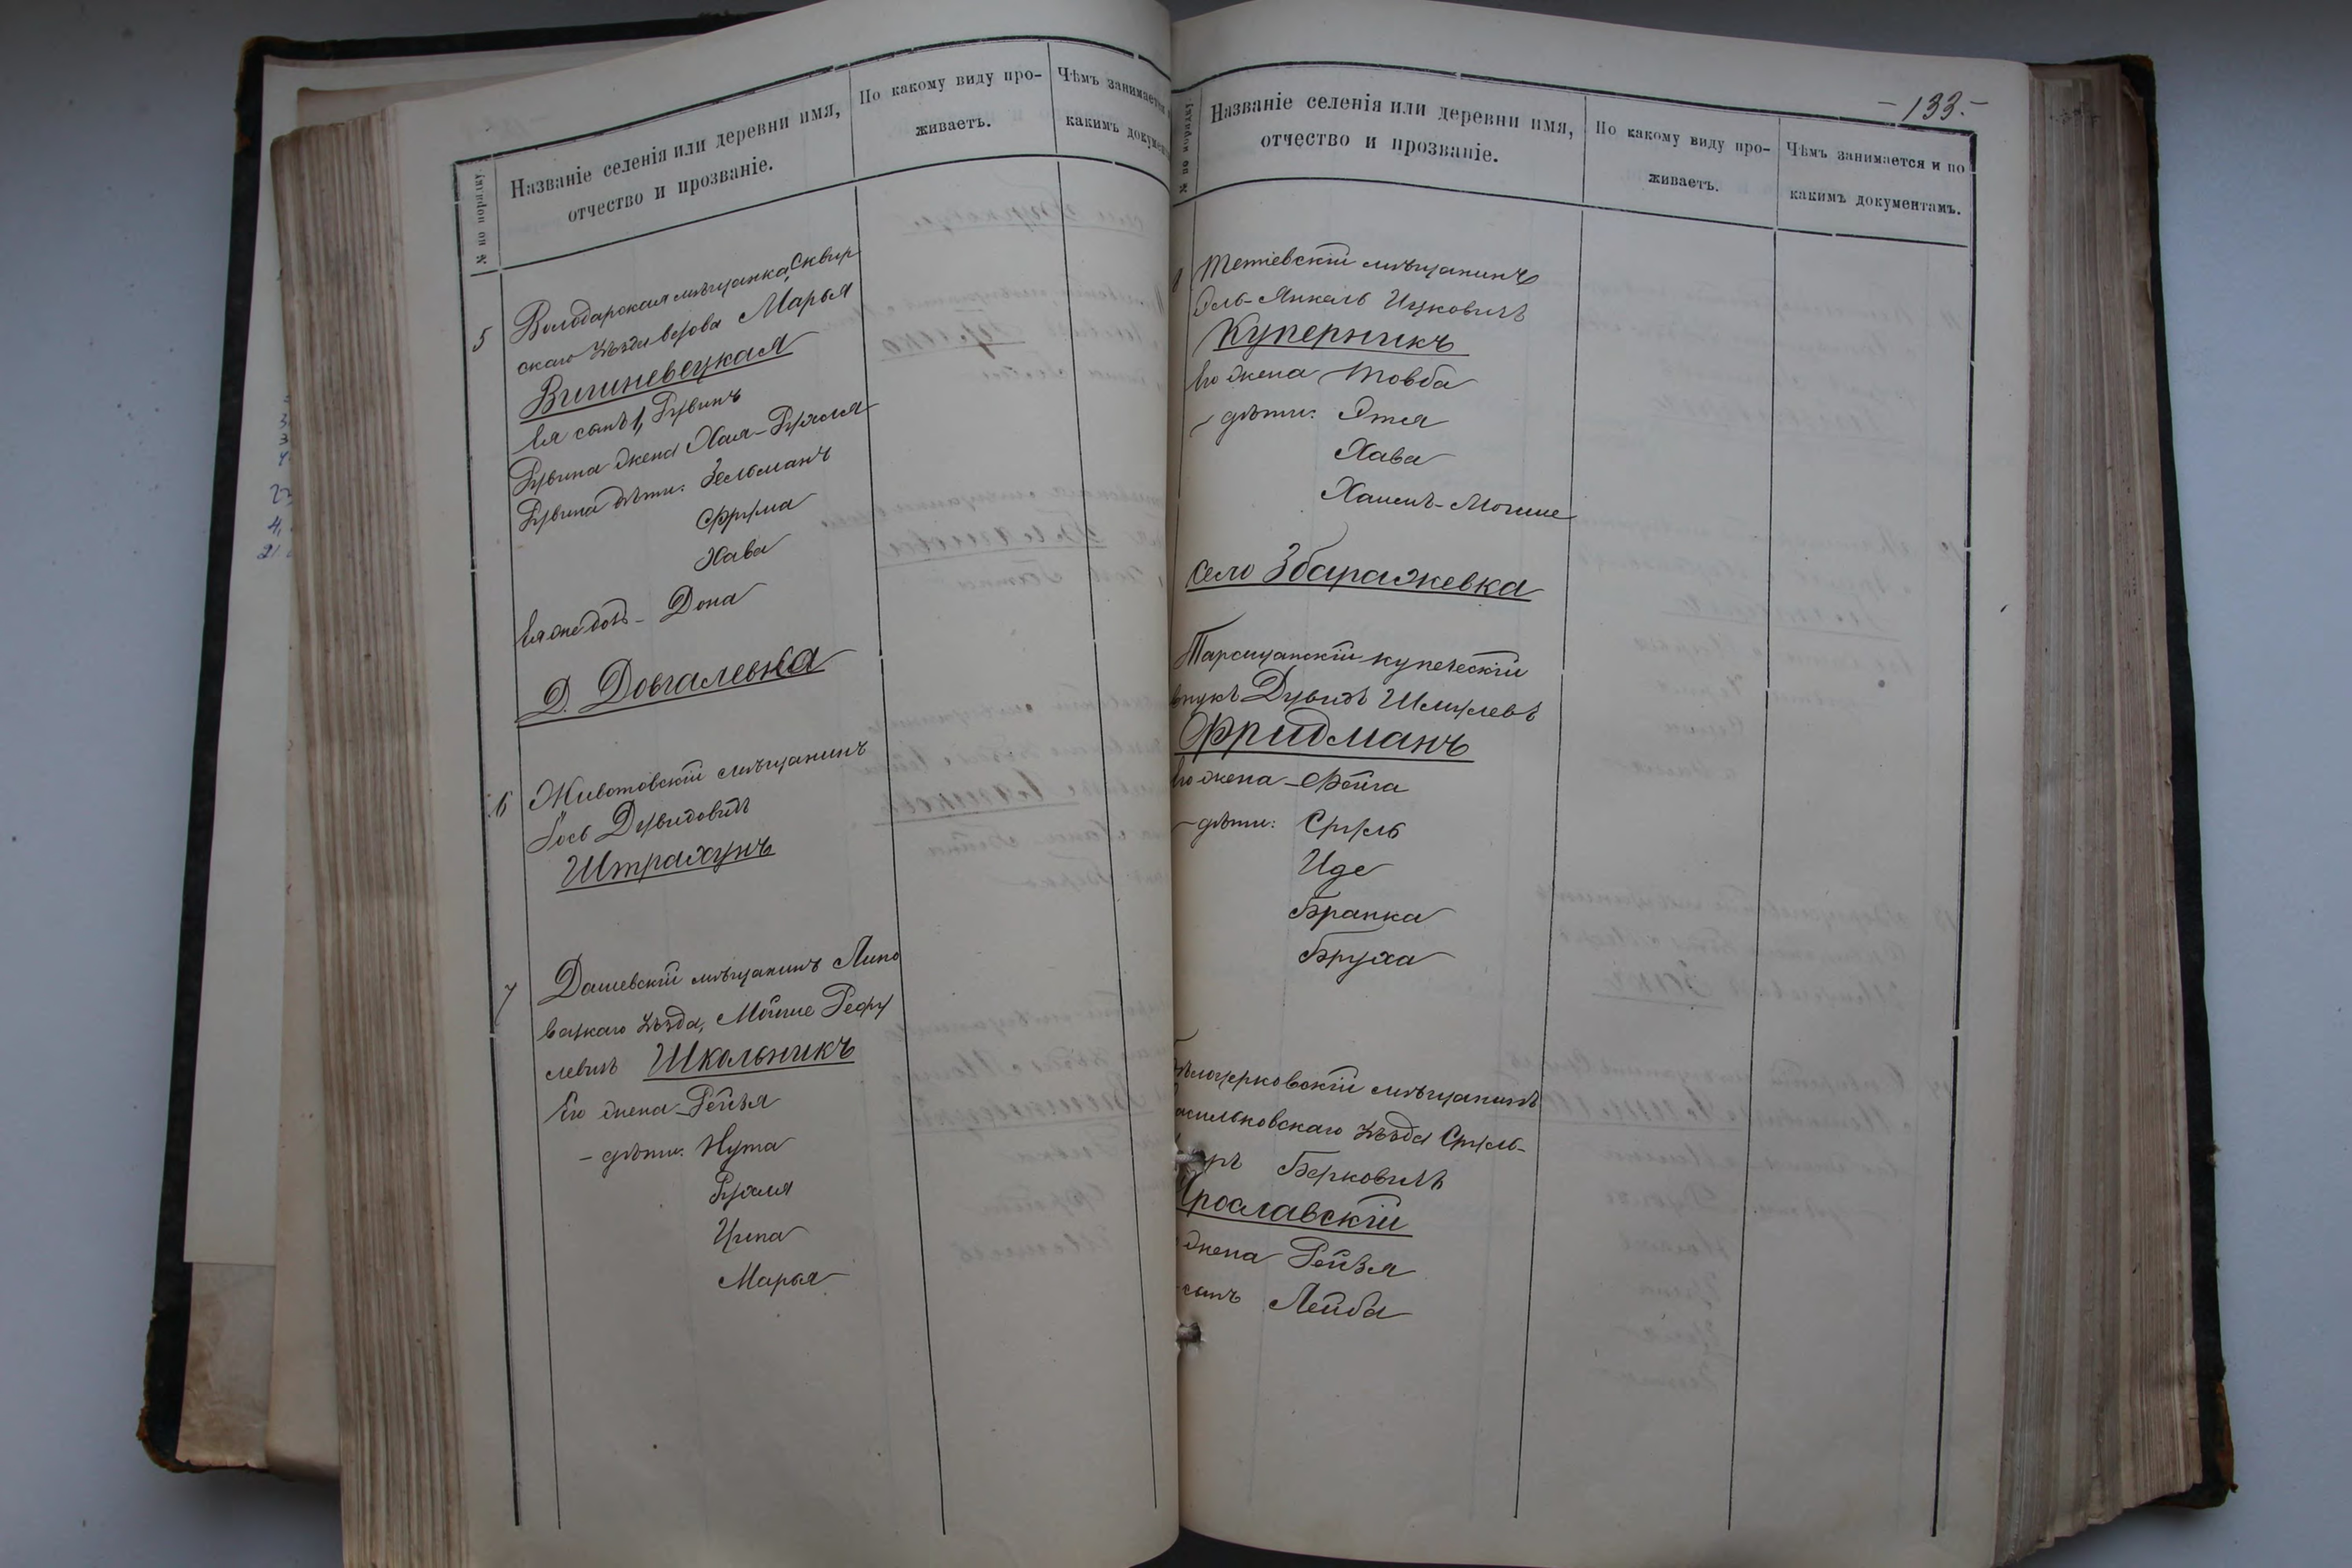 № по порядку.
Названіе селенія или деревни имя,
отчество и прозваніе.
По какому виду про-
живаетъ.
Чѣмъ занимается
какимъ докумен
5
Володарская мѣщанка, Сквир
скаго уѣзда вдова Марья
Вишневецкая
Ея сынъ 1, Рувинъ
Рувина жена Хая-Рухля
Рувина дѣти: Зельманъ
Фрума
Хава
Ея же дочь - Дона
Д. Довгалевка
6
Животовскій мѣщанинъ
Іось Дувидовичъ
Штрахунъ
7
Дашевскій мѣщанинъ Липо
вецкаго уѣзда, Мойше Рефу
левичъ Школьникъ
Его жена - Рейзя
- дѣти: Нута
Рухля
Ципа
Марья
- 133. -
№ по порядку
Названіе селенія или деревни имя,
отчество и прозваніе.
По какому виду про-
живаетъ.
Чѣмъ занимается и по
какимъ документамъ.
Тетіевскій мѣщанинъ
Эль-Янкель Ицковичъ
Куперникъ
Его жена Товба
- дѣти: Этя
Хава
Хаимъ-Мошше
село Збаражевка
Таращанскій купеческій
внукъ Дувидъ Шмулевъ
Фридманъ
Его жена - Фейга
- дѣти: Сруль
Иде
Бранка
Бруха
Бѣлоцерковскій мѣщанинъ
Васильковскаго уѣзда Сруль-
Берковичъ
Ярославскій
жена Рейзя
сынъ Лейба